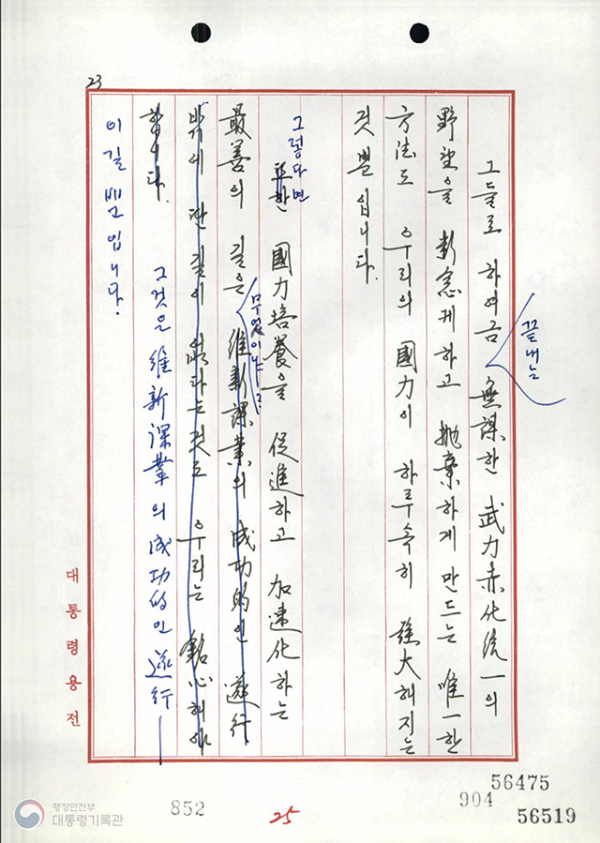 23
끝내는
그들로 하여금 無謀한 武力赤化統一의
野望을 斷念케하고 抛棄하게 만드는 唯一한
方法도 우리의 國力이 하루속히 强大해지는
것뿐입니다.
그렇다면
또한 國力培養을 促進하고 加速化하는
무엇이냐?
最善의 길은 維新課業의 成功的인 遂行
밖에 딴길이 없다는것도 우리는 銘心해야
합니다. 그것은 維新課業의 成功的인 遂行—
이길뿐입니다.
대통령용전
56475
904
56519
852
25
행정안전부
대통령기록관